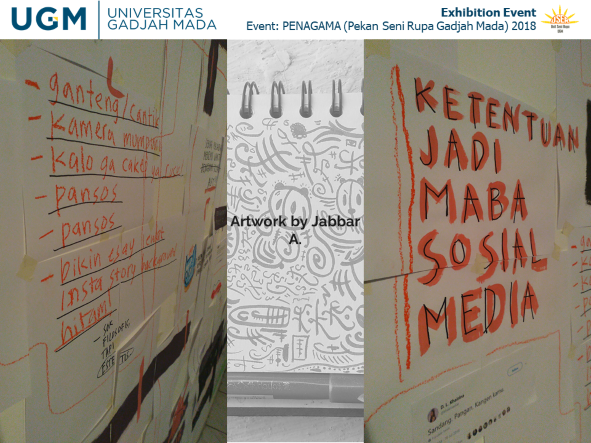 UGM
UNIVERSITAS
GADJAH MADA
Exhibition Event
Event: PENAGAMA (Pekan Seni Rupa Gadjah Mada) 2018
- ganteng/cantik
- kamera mumpuni
- kalo ga cakep ya lucu
- pansos
- pansos
- bikin esay lewat
insta story background
hitam!
- SOK
FILOSOFIS,
TAPI
ESTETIS
Artwork by Jabbar
A.
KETENTUAN
JADI
MABA
SOSIAL
MEDIA
Sandang, Pangan, Kangen kamu